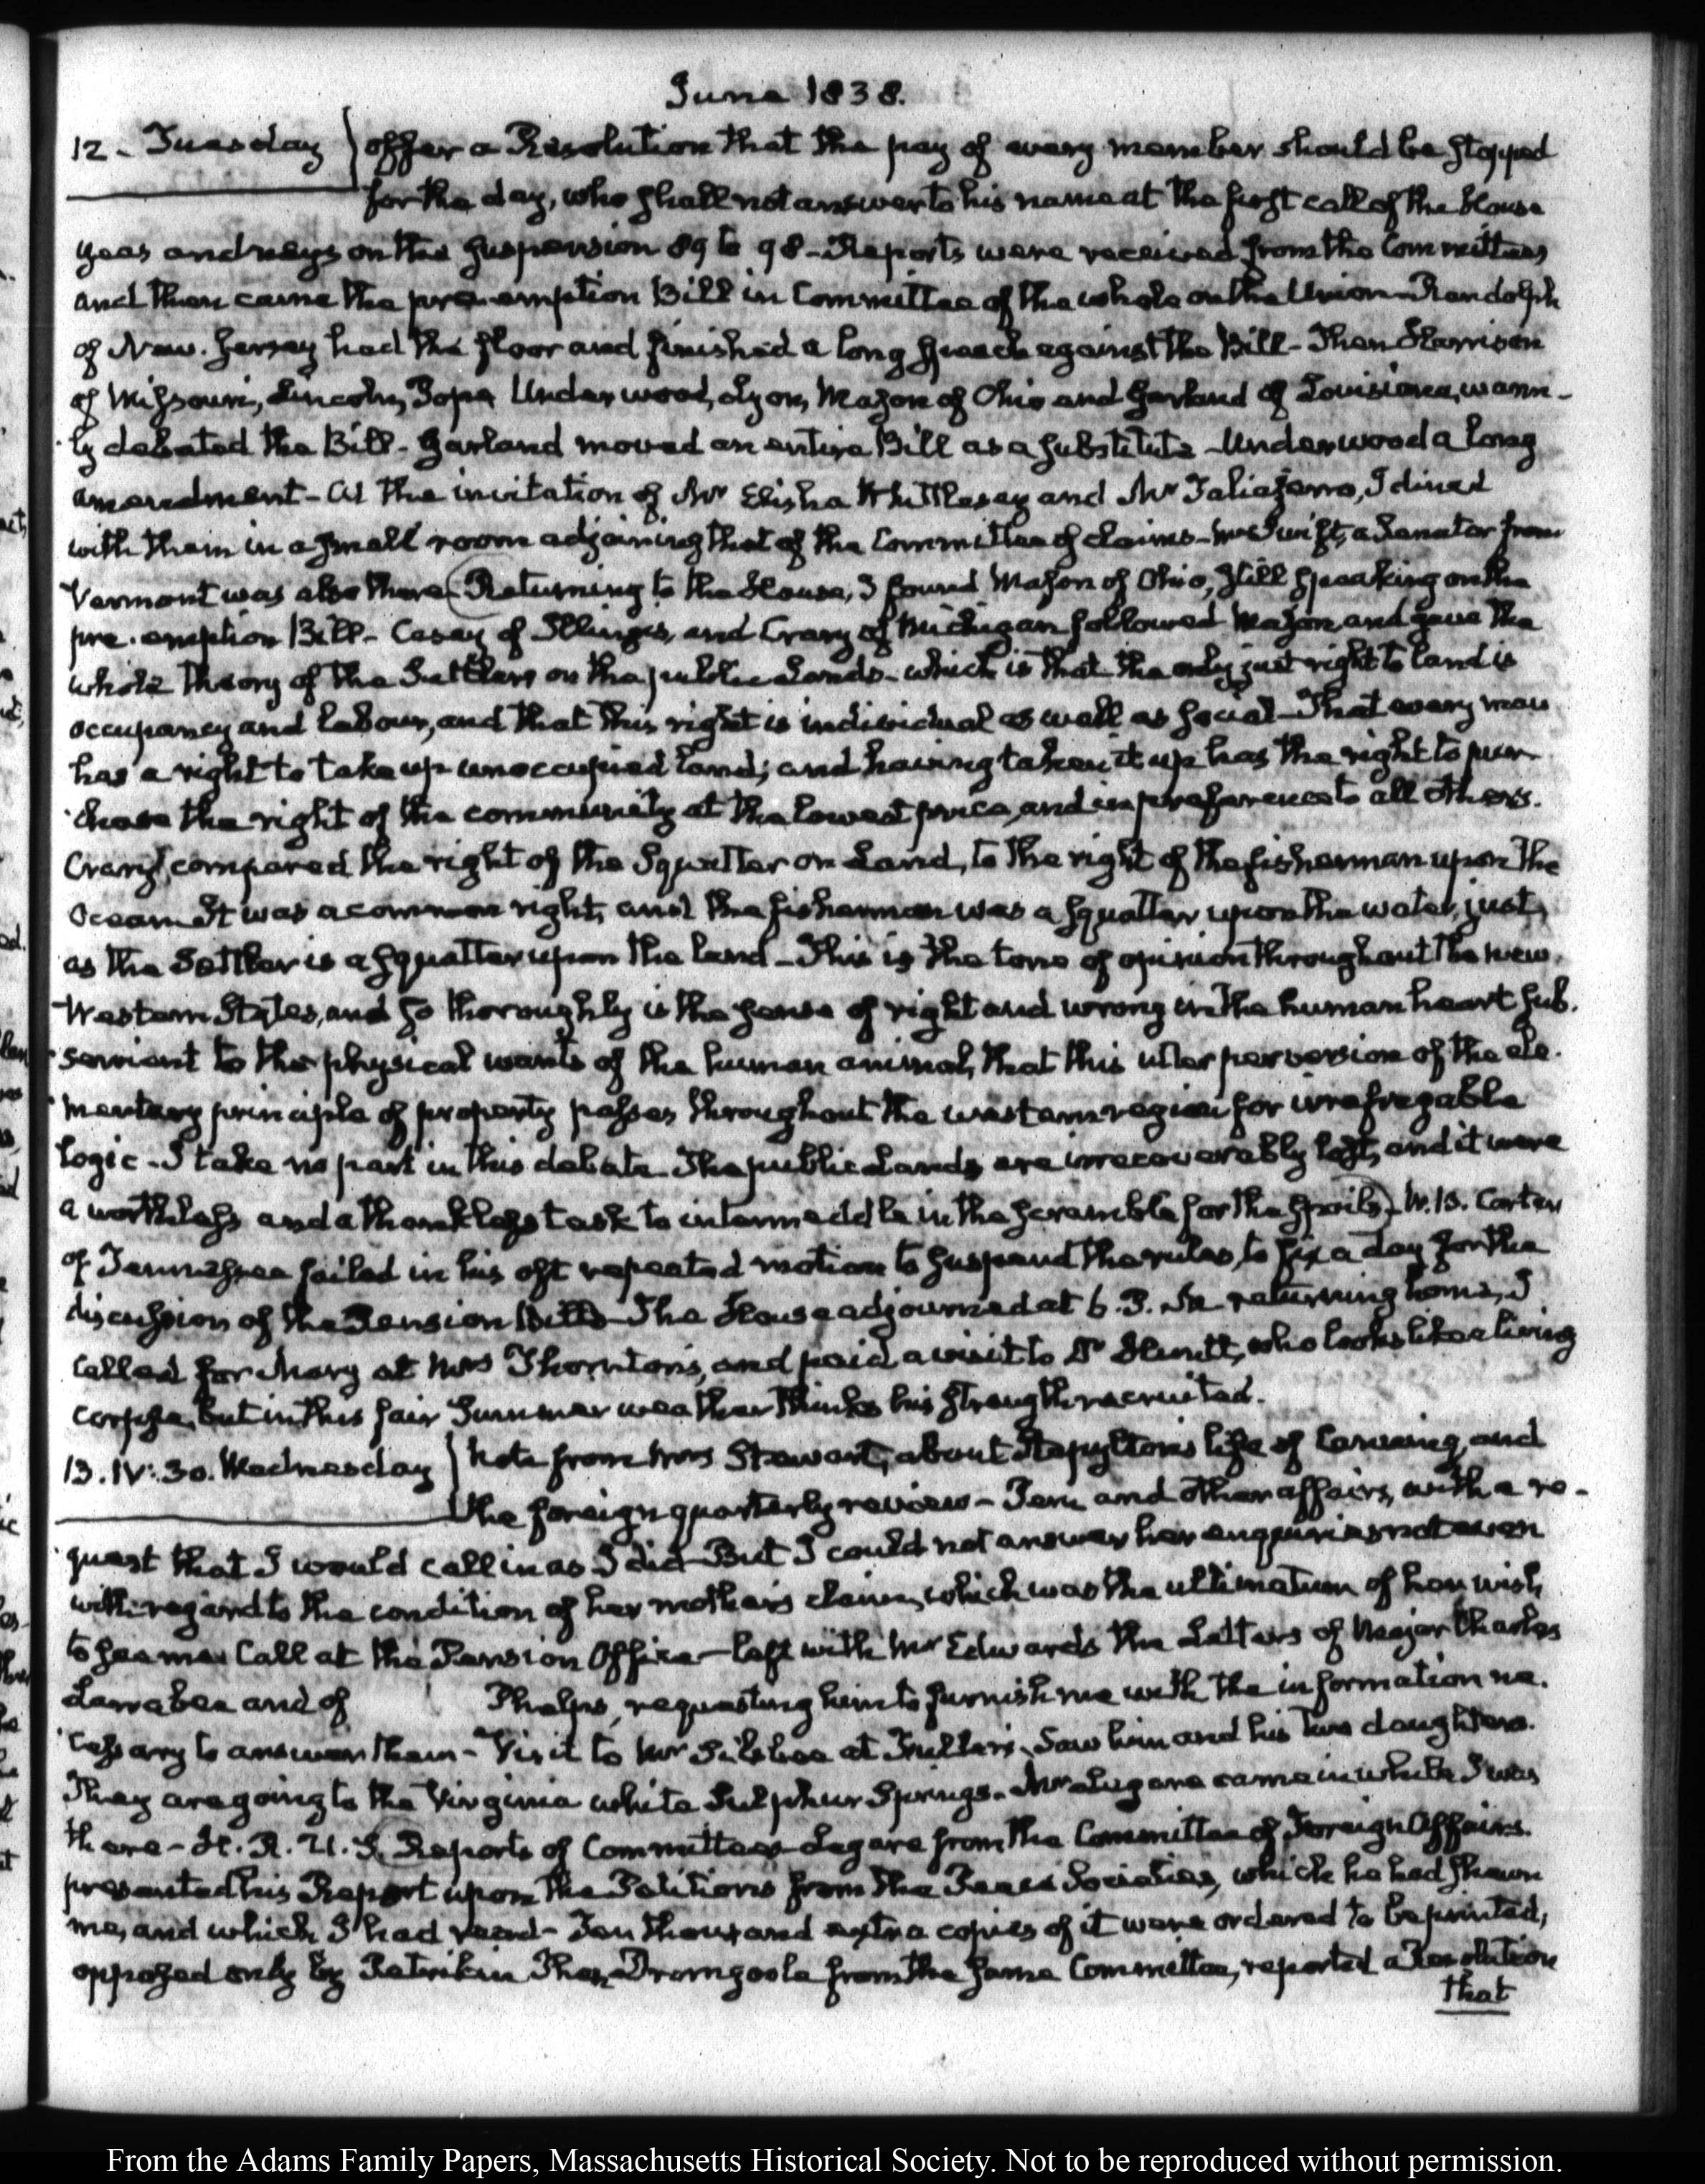 June 1838.
12. Tuesday } offer a Resolution that the pay of every member should be stopped
for the day, who shall not answer to his name at the first call of the House
yeas and nays on the suspension 89 to 98 - Reports were received from the Committees
and then came the pre-emption Bill in Committee of the whole on the Union - Randolph
of New-Jersey had the floor and finished a long speech against the Bill - Then Harrison
of Missouri, Lincoln, Pope Underwood, Lyon, Mason of Ohio and Garland of Louisiana, warm-
ly debated the Bill - Garland moved an entire Bill as a substitute - Underwood a long
amendment - At the invitation of Mr Elisha Whittlesey and Mr Taliaferro, I dined
with them in a small room adjoining that of the Committee of Claims - Mr Swift, a Senator from
Vermont was also there. Returning to the House, I found Mason of Ohio, still speaking on the
pre-emption Bill - Casey of Illinois, and Crary of Michigan followed Mason and gave the
whole theory of the Settlers on the public Lands - which is that the only just right to land is
occupancy and labour, and that this right is individual as well as social - That every man
has a right to take up unoccupied land; and having taken it up has the right to pur-
chase the right of the community at the lowest price, and in preference to all others.
Crary compared the right of the Squatter on Land, to the right of the fisherman upon the
Ocean It was a common right, and the fisherman was a squatter upon the water, just
as the Settler is a squatter upon the land - This is the tone of opinion throughout the new
Western States, and so thoroughly is the sense of right and wrong in the human heart sub-
servient to the physical wants of the human animal, that this utter perversion of the ele-
mentary principle of property passes throughout the western region for irrefragable
logic - I take no part in this debate The public Lands are irrecoverably lost, and it were
a worthless and a thankless task to intermeddle in the scramble for the spoils - W. B. Carter
of Tennessee failed in his oft repeated motion to suspend the rules, to fix a day for the
discussion of the Pension Bills - The House adjourned at 6. P. M. returning home, I
called for Mary at Mrs Thornton's, and paid a visit to Dr Hunt, who looks like a living
corpse, but in this fair Summer weather thinks his strength recruited.
13. IV:30. Wednesday } Note from Mrs Stewart, about Stapylton's life of Canning, and
the foreign quarterly review - Tea, and other affairs, with a re-
quest that I would call in as I did - But I could not answer her enquiries not even
with regard to the condition of her mother's claim, which was the ultimatum of her wish
to see me. Call at the Pension Office - left with Mr Edwards the Letters of Major Charles
Larrabee and of Phelps, requesting him to furnish me with the information ne-
cessary to answer them - Visit to Mr Silsbee at Fuller's. Saw him and his two daughters.
They are going to the Virginia white Sulphur Springs. Mr Legare came in while I was
there - H. R. U. S. Reports of Committees - Legare from the Committee of Foreign Affairs.
presented his Report upon the Petitions from the Peace Societies, which he had shown
me, and which I had read - Ten thousand extra copies of it were ordered to be printed,
opposed only by Petrikin Then Dromgoole from the same Committee, reported a Resolution
that
From the Adams Family Papers, Massachusetts Historical Society. Not to be reproduced without permission.